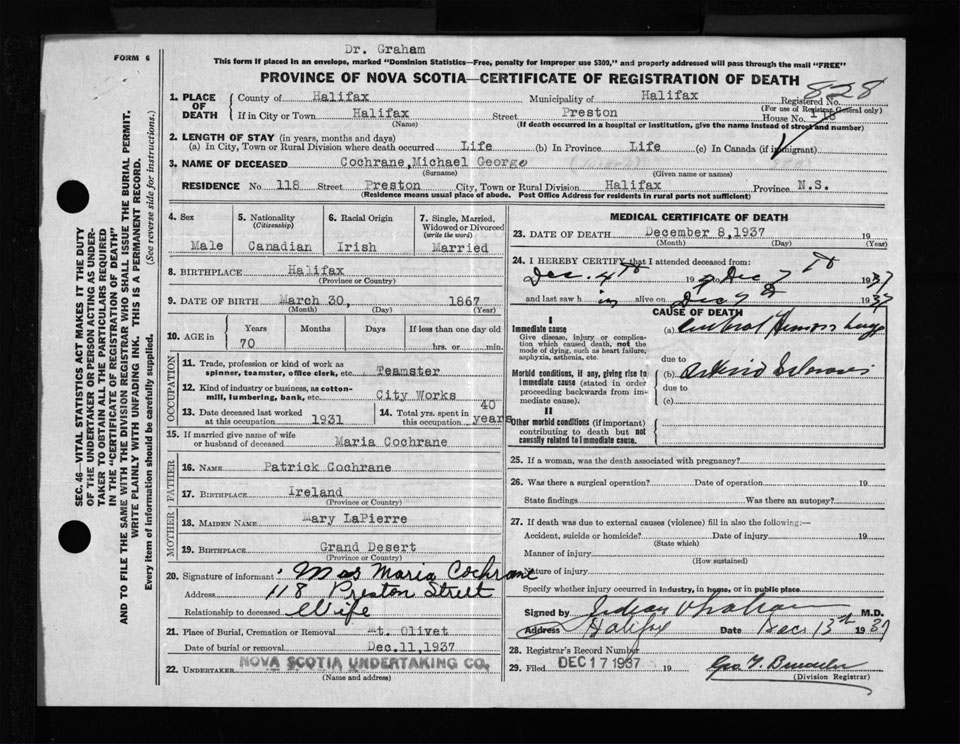 Dr. Graham
FORM 6
This form if placed in an envelope, marked "Dominion Statistics—Free, penalty for improper use $300," and properly addressed will pass through the mail "FREE"
PROVINCE OF NOVA SCOTIA—CERTIFICATE OF REGISTRATION OF DEATH
828
1. PLACE OF DEATH
County of Halifax Municipality of Halifax Registered No.
(For use of Registrar General only)
If in City or Town Halifax Street Preston House No. 118
(Name) (If death occurred in a hospital or institution, give the name instead of street and number)
2. LENGTH OF STAY (in years, months and days)
(a) In City, Town or Rural Division where death occurred Life (b) In Province Life (c) In Canada (if immigrant)
3. NAME OF DECEASED Cochrane, Michael George
(Surname) (Given name or names)
RESIDENCE No. 118 Street Preston City, Town or Rural Division Halifax Province N.S.
(Residence means usual place of abode. Post Office Address for residents in rural parts not sufficient)
4. Sex
Male
5. Nationality
(Citizenship)
Canadian
6. Racial Origin
Irish
7. Single, Married, Widowed or Divorced
(write the word)
Married
8. BIRTHPLACE Halifax
(Province or Country)
9. DATE OF BIRTH March 30, 1867
(Month) (Day) (Year)
10. AGE in Years Months Days If less than one day old
70 hrs. or min.
OCCUPATION
11. Trade, profession or kind of work as
spinner, teamster, office clerk, etc. Teamster
12. Kind of industry or business, as cotton-
mill, lumbering, bank, etc. City Works
13. Date deceased last worked
at this occupation 1931
14. Total yrs. spent in
this occupation 40 years
15. If married give name of wife
or husband of deceased Maria Cochrane
FATHER
16. NAME Patrick Cochrane
17. BIRTHPLACE Ireland
(Province or Country)
MOTHER
18. MAIDEN NAME Mary LaPierre
19. BIRTHPLACE Grand Desert
(Province or Country)
20. Signature of informant Mrs Maria Cochrane
Address 118 Preston Street
Relationship to deceased Wife
21. Place of Burial, Cremation or Removal Mt. Olivet
Date of burial or removal Dec.11,1937
22. UNDERTAKER NOVA SCOTIA UNDERTAKING CO.
(Name and address)
MEDICAL CERTIFICATE OF DEATH
23. DATE OF DEATH December 8,1937 19
(Month) (Day) (Year)
24. I HEREBY CERTIFY that I attended deceased from:
Dec. 4th 19 Dec 7th 1937
and last saw h im alive on Dec 7th 1937
CAUSE OF DEATH
I
Immediate cause
Give disease, injury or complica-
tion which caused death, not the
mode of dying, such as heart failure,
asphyxia, asthenia, etc.
(a) Cerebral Hemorrhage
due to
Morbid conditions, if any, giving rise to
immediate cause (stated in order
proceeding backwards from im-
mediate cause).
(b) Arterio Sclerosis
due to
(c)
II
Other morbid conditions (if important)
contributing to death but not
causally related to immediate cause.
25. If a woman, was the death associated with pregnancy?
26. Was there a surgical operation? Date of operation 19
State findings Was there an autopsy?
27. If death was due to external causes (violence) fill in also the following:—
Accident, suicide or homicide? Date of injury 19
(State which)
Manner of injury
(How sustained)
Nature of injury
Specify whether injury occurred in industry, in home, or in public place
Signed by Graham M.D.
Address Halifax Date Dec 13th 1937
28. Registrar's Record Number
29. Filed DEC 17 1937 19
(Division Registrar)
SEC. 46—VITAL STATISTICS ACT MAKES IT THE DUTY
OF THE UNDERTAKER OR PERSON ACTING AS UNDER-
TAKER TO OBTAIN ALL THE PARTICULARS REQUIRED
IN THE "CERTIFICATE OF REGISTRATION OF DEATH"
AND TO FILE THE SAME WITH THE DIVISION REGISTRAR WHO SHALL ISSUE THE BURIAL PERMIT.
WRITE PLAINLY WITH UNFADING INK. THIS IS A PERMANENT RECORD.
Every item of information should be carefully supplied. (See reverse side for instructions.)